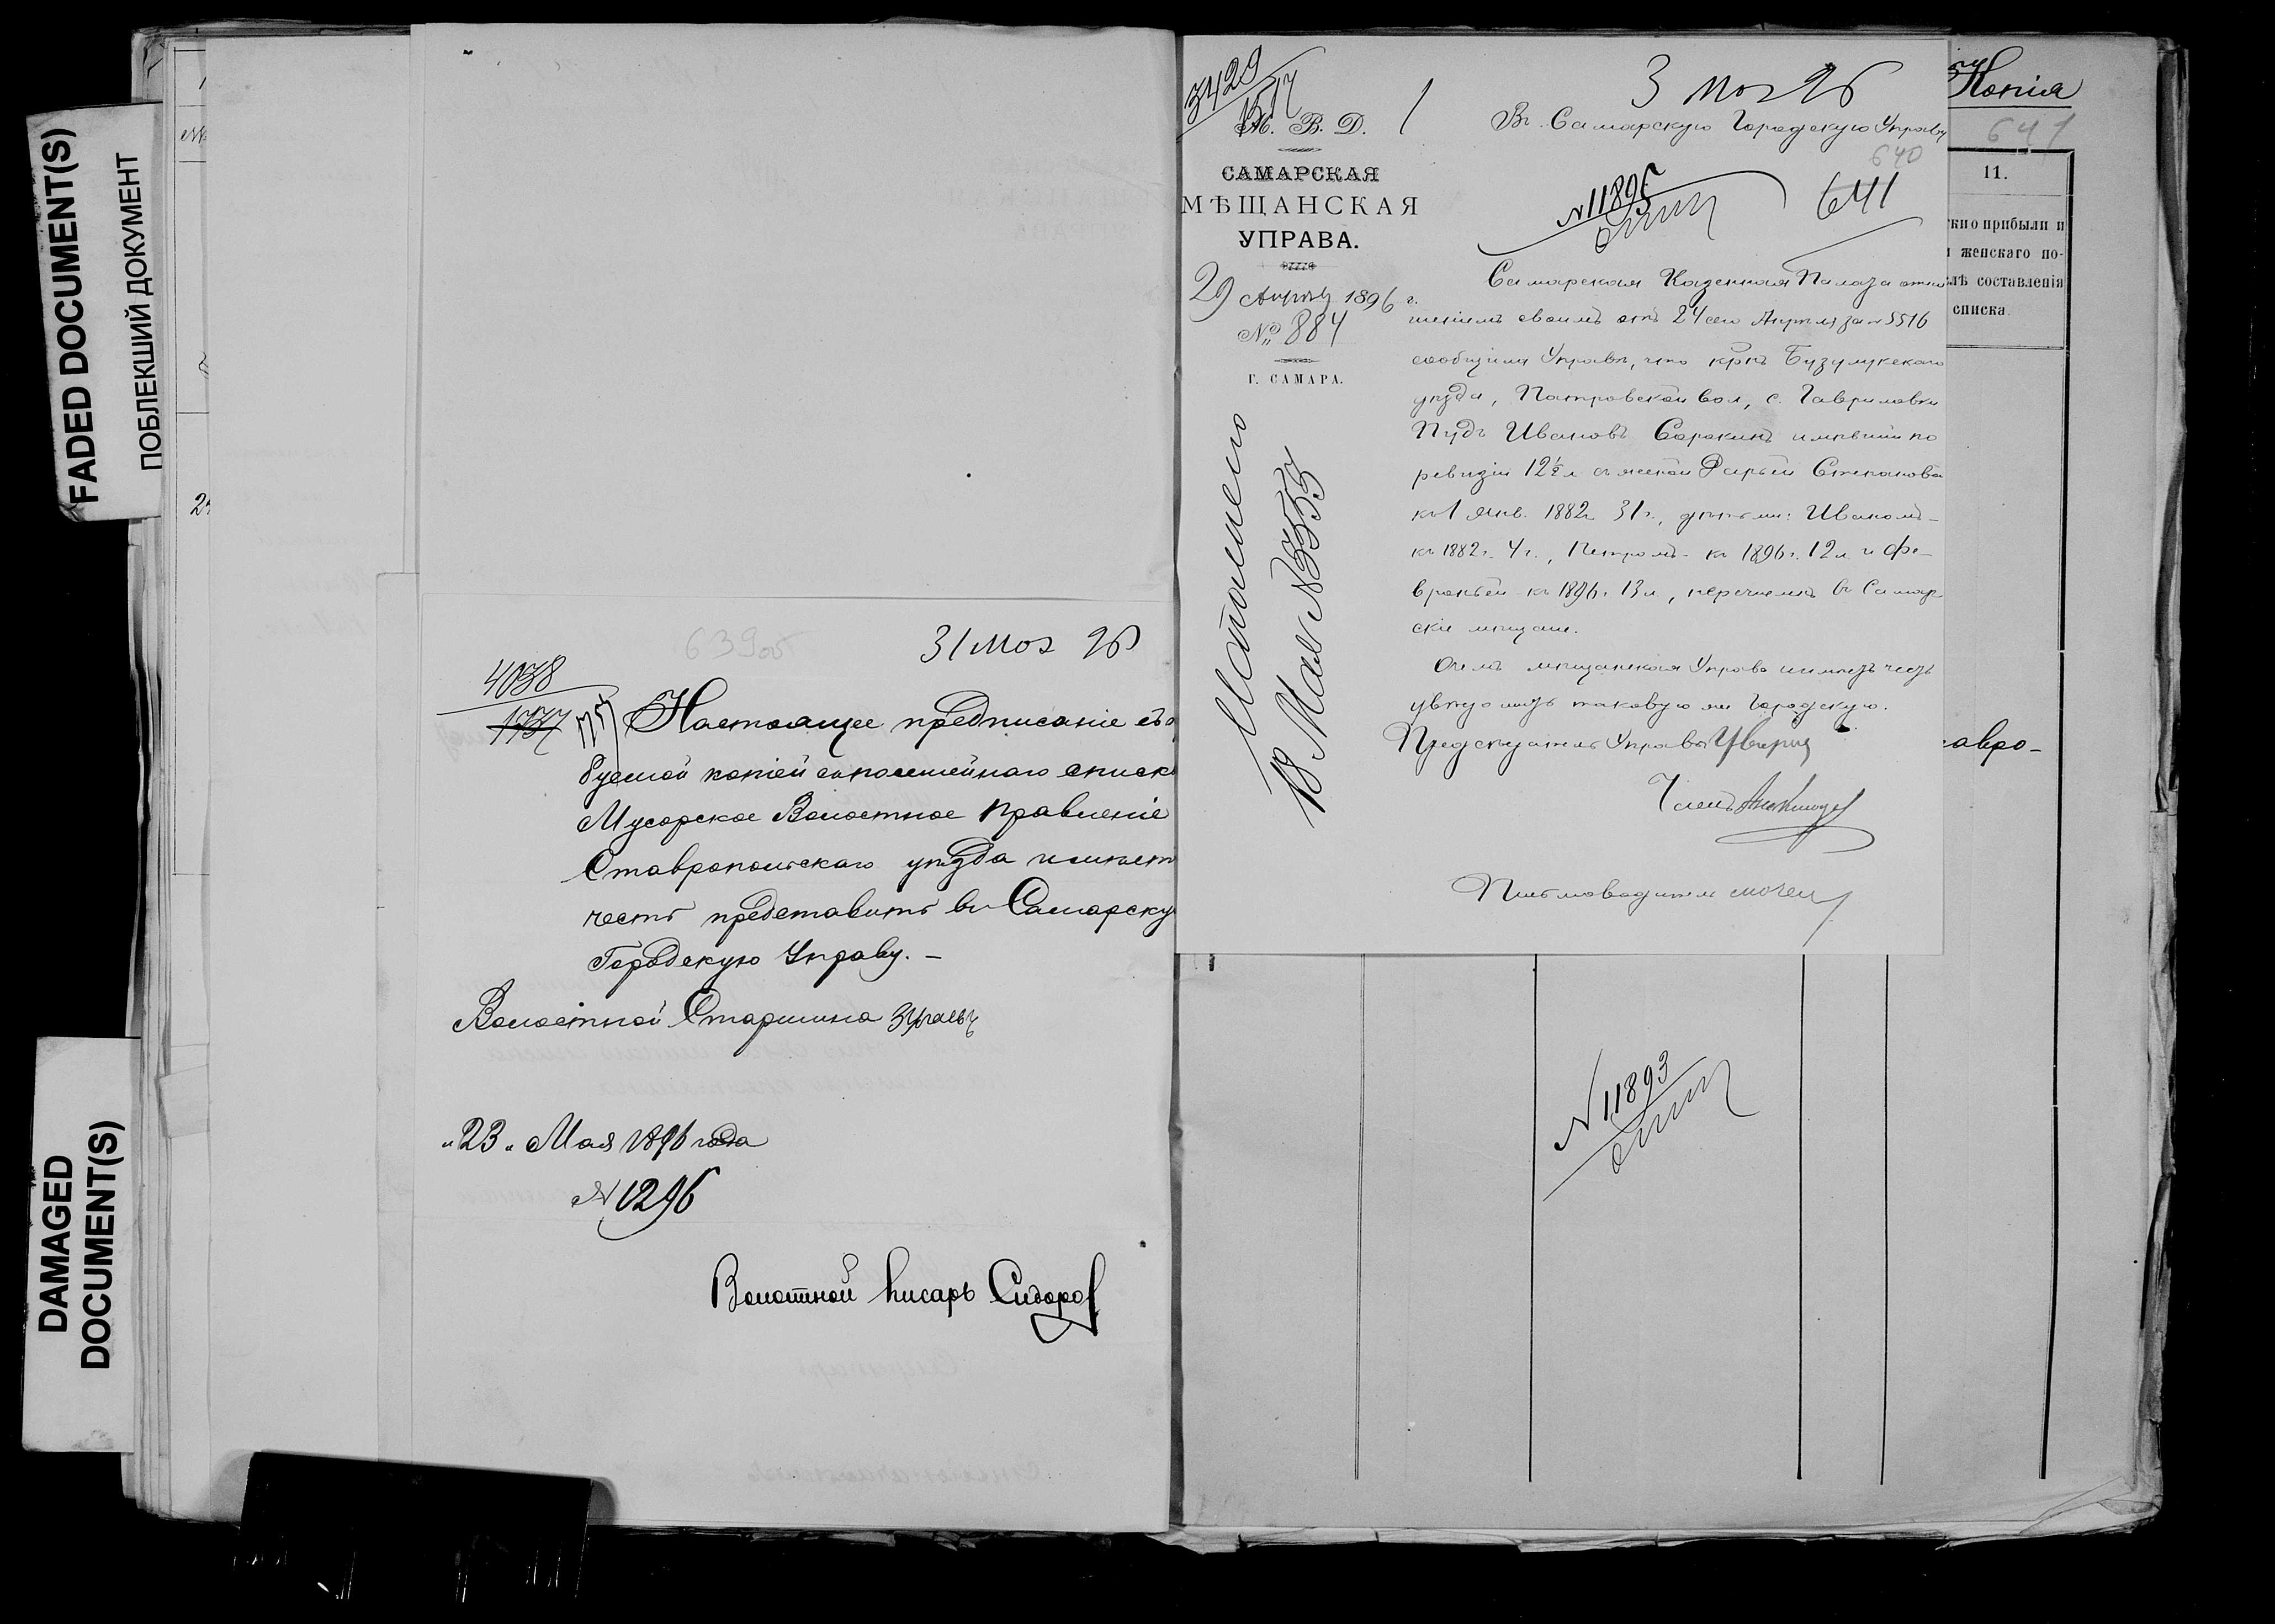 FADED DOCUMENT(S)
ПОБЛЕКШИЙ ДОКУМЕНТ
DAMAGED
DOCUMENT(S)
639об
31 Мая 96
4038
1737
1757
Настоящее предписаніе съ о
Мусорское Волостное Правленіе
Ставропольскаго уѣзда имѣет
честь представить въ Самарску
Городскую Управу. –
Волостной Старшина
„23„ Мая 1896 года
№ 1296
Волостной писарь Сидоров
3429
М. В. Д.
САМАРСКАЯ
МѢЩАНСКАЯ
УПРАВА.
29 Апрѣля 1896 г.
№ 884
Г. САМАРА.
Исполнено
18 Мая № 3555
3 Мая 96
Въ Самарскую Городскую Управу
640
641
№ 11895
Самарская Казенная Палата отно
шеніемъ своимъ отъ 24 сего Апрѣля за № 5516
сообщила Управѣ, что кр̃нъ Бузулукскаго
уѣзда, Патровской вол., с. Гавриловки
Пудъ Ивановъ Сорокинъ имѣвшій по
ревизіи 12½ л. съ женой Дарьей Степановой
къ 1 Янв. 1882 г. 31 г., дѣтьми: Иваномъ –
къ 1882 г. 4 г., Петромъ – къ 1896 г. 12 л. и Фе–
вроньей – къ 1896 г. 13 л., перечисленъ въ Самар
скіе мѣщане.
О чемъ мѣщанская Управа имѣетъ честь
увѣдомить таковую же Городскую.
Предсѣдатель Управы
Членъ
Письмоводитель
Копія
641
11.
но прибыли и
женскаго по-
лѣ составленія
списка.
авро–
№ 11893